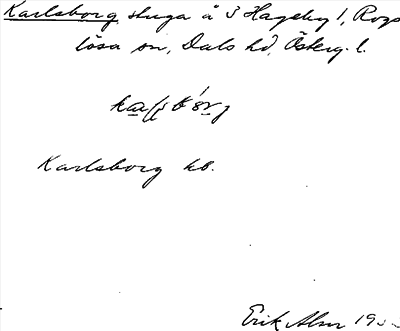 Karlsborg, stuga å 3 Hageby 1, Rogs
lösa sn, Dals hd, Österg. l.
Karlsborg kb.
Erik Alm